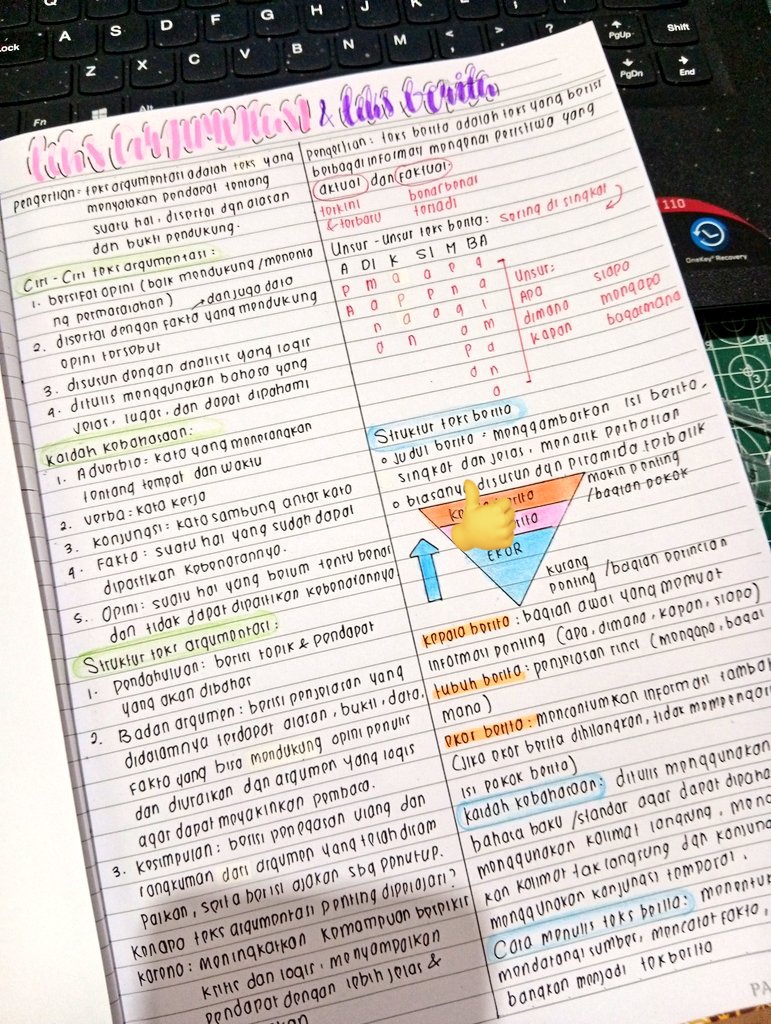 teks argumentasi & teks berita
pengertian = teks argumentasi adalah teks yang
menyatakan pendapat tentang
suatu hal, disertai dgn alasan
dan bukti pendukung.
Ciri - Ciri teks argumentasi :
1. bersifat opini (baik mendukung / menenta
ng permasalahan)
→ dan juga data
2. disertai dengan fakta yang mendukung
opini tersebut
3. disusun dengan analisis yang logis
4. ditulis menggunakan bahasa yang
jelas, lugas, dan dapat dipahami
kaidah kebahasaan :
1. Adverbia : kata yang menerangkan
tentang tempat dan waktu
2. verba : kata kerja
3. konjungsi : kata sambung antar kata
4. Fakta : suatu hal yang sudah dapat
dipastikan kebenarannya.
5. Opini : suatu hal yang belum tentu benar
dan tidak dapat dipastikan kebenarannya
Struktur teks argumentasi :
1. Pendahuluan : berisi topik & pendapat
yang akan dibahas
2. Badan argumen : berisi penjelasan yang
didalamnya terdapat alasan, bukti, data,
fakta yang bisa mendukung opini penulis
dan diuraikan dan argumen yang logis
agar dapat meyakinkan pembaca.
3. Kesimpulan : berisi penegasan ulang dan
rangkuman dari argumen yang telah disam
paikan, serta berisi ajakan sbg penutup.
Kenapa teks argumentasi penting dipelajari?
karena : Meningkatkan kemampuan berpikir
kritis dan logis, menyampaikan
pendapat dengan lebih jelas &
pengertian : teks berita adalah teks yang berisi
berbagai informasi mengenai peristiwa yang
aktual dan faktual.
terkini benar benar
terbaru terjadi
Unsur - unsur teks berita : sering di singkat
A DI K SI M BA
P m a a e g
A a p p n a
n a a g i
a n a m
p a
a n
a
Unsur:
Apa siapa
dimana mengapa
kapan bagaimana
Struktur teks berita
○ judul berita = menggambarkan isi berita,
singkat dan jelas, menarik perhatian
○ biasanya disusun dgn piramida terbalik
makin penting
/bagian pokok
EKOR
kurang
penting /bagian perincian
kepala berita : bagian awal yang memuat
informasi penting (apa, dimana, kapan, siapa)
tubuh berita : penjelasan rinci (mengapa, bagai
mana)
ekor berita : mencantumkan informasi tambah
(Jika ekor berita dihilangkan, tidak mempengar
isi pokok berita)
kaidah kebahasaan : ditulis menggunakan
bahasa baku / standar agar dapat dipaha
menggunakan kalimat langsung,
kan kalimat tak langsung dan konjun
menggunakan konjungsi temporal.
Cara menulis teks berita : menentuk
mendatangi sumber, mencatat fakta,
bangkan menjadi teks berita
A S D F G H J K L
Z X C V B N M
Fn
Alt
PgUp
Shift
PgDn
End
110
OneKey Recovery